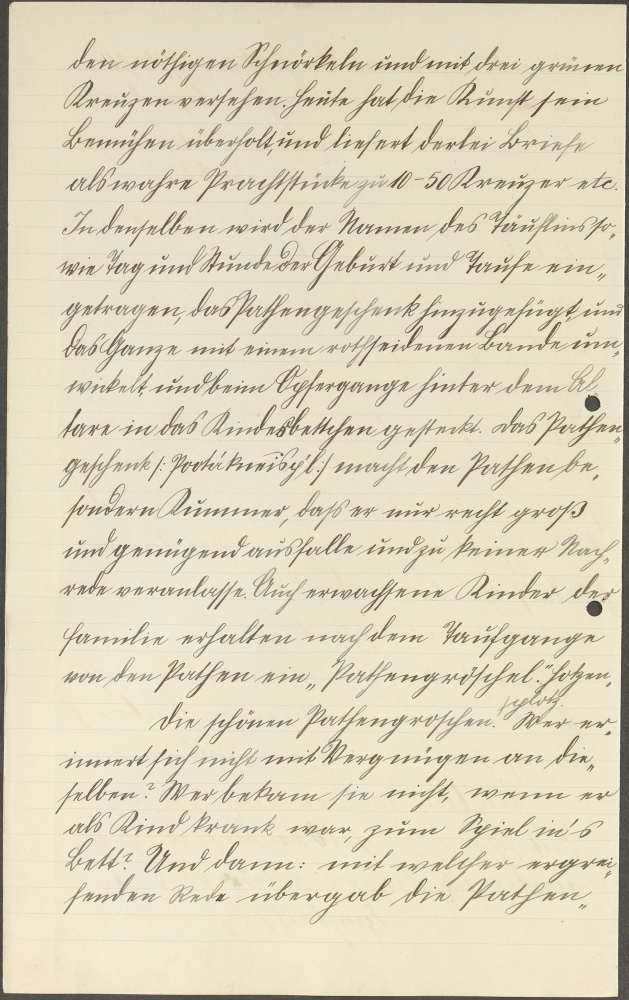 den nöthigen Schnörkeln und mit drei grünen
Kreuzen versehen. Heute hat die Kunst sein
Bemühen überholt, und liefert derlei Briefe
als wahre Prachtstücke zu 10-50 Kreuzer etc.
In denselben wird der Namen des Täuflins so„
wie Tag und Stunde der Geburt und Taufe ein„
getragen, das Pathengeschenk hinzugefügt, und
das Ganze mit einem rothseidenen Bande um„
wickelt und beim Opfergange hinter dem Al„
tare in das Kindesbettchen gesteckt. Das Pathen„
geschenk /: :/ macht den Pathen be„
sondern Kummer, daß er nur recht groß
und genügend ausfalle und zu keiner Nach„
rede veranlasse. Auch erwachsene Kinder der
Familie erhalten nach dem Taufgange
von den Pathen ein „Pathengröschel." Hotzen„
plotz.
Die schönen Pathengroschen. Wer er„
innert sich nicht mit Vergnügen an die„
selben? Wer bekam sie nicht, wenn er
als Kind krank war, zum Spiel in's
Bett? Und dann: mit welcher ergrei„
fenden Rede übergab die Pathen„